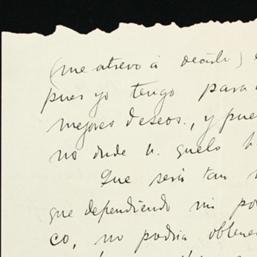 (me atrevo á decirlo)
pues yo tengo para
mejores deseos., y pue
no donde
Que será tan
que dependiendo mi po
co, no podria obtene